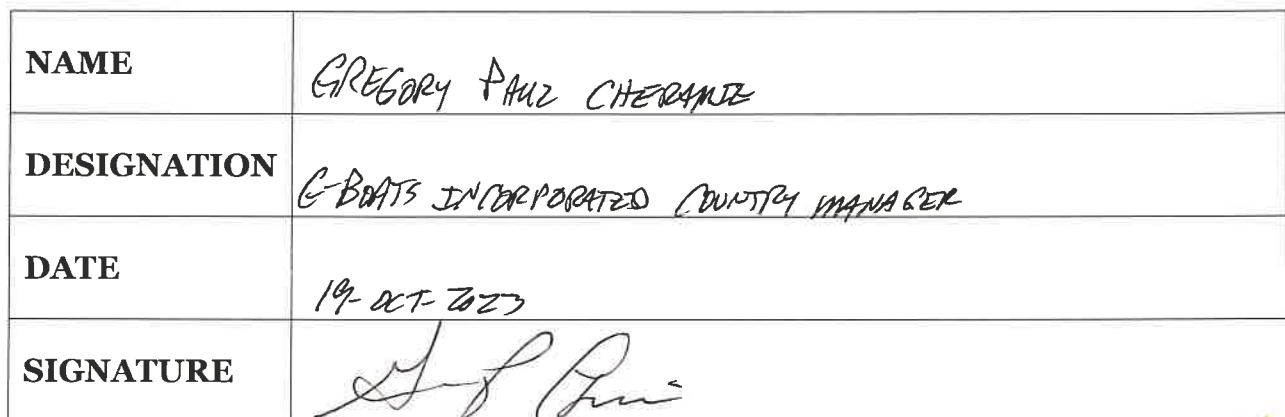 NAME GREGORY PAUL CHERAMIE
DESIGNATION G-BOATS INCORPORATED COUNTRY MANAGER
DATE 19-OCT-2023
SIGNATURE